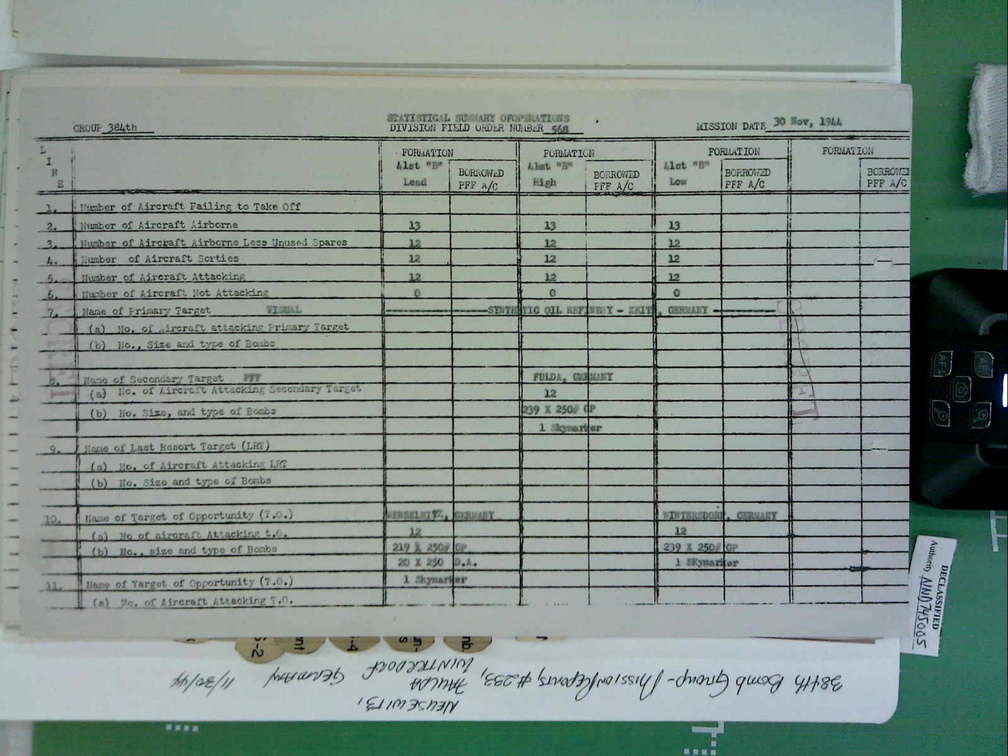 STATISTICAL SUMMARY OFOPERATIONS
GROUP 384th DIVISION FIELD ORDER NUMBER 568 MISSION DATE 30 Nov, 1944
L I N E FORMATION FORMATION FORMATION FORMATION
41st "B" Lead BORROWED PFF A/C 41st "B" High BORROWED PFF A/C 41st "B" Low BORROWED PFF A/C BORROWED PFF A/C
1. Number of Aircraft Failing to Take Off
2. Number of Aircraft Airborne 13 13 13
3. Number of Aircraft Airborne Less Unused Spares 12 12 12
4. Number of Aircraft Sorties 12 12 12
5. Number of Aircraft Attacking 12 12 12
6. Number of Aircraft Not Attacking 0 0 0
7. Name of Primary Target VISUAL SYNTHETIC OIL REFINERY - ZEITZ, GERMANY
(a) No. of Aircraft attacking Primary Target
(b) No., Size and type of Bombs
8. Name of Secondary Target PFF FULDA, GERMANY
(a) No. of Aircraft Attacking Secondary Target 12
(b) No. Size, and type of Bombs 239 X 250# GP
1 Skymarker
9. Name of Last Resort Target (LRT)
(a) No. of Aircraft Attacking LRT
(b) No. Size and type of Bombs
10. Name of Target of Opportunity (T.O.) GERMANY WINTERSDORF, GERMANY
(a) No of aircraft Attacking t.O. 12 12
(b) No., size and type of Bombs 219 X 250# GP 239 X 250# GP
20 X 250 D.A. 1 Skymarker
11. Name of Target of Opportunity (T.O.) 1 Skymarker
(a) No. of Aircraft Attacking T.O.
SECRET
DECLASSIFIED
Authority NND745005
384th Bomb Group - Mission Reports, #233,
NEUSEWITZ,
FAULDA
WINTERDORF GERMANY 11/30/44